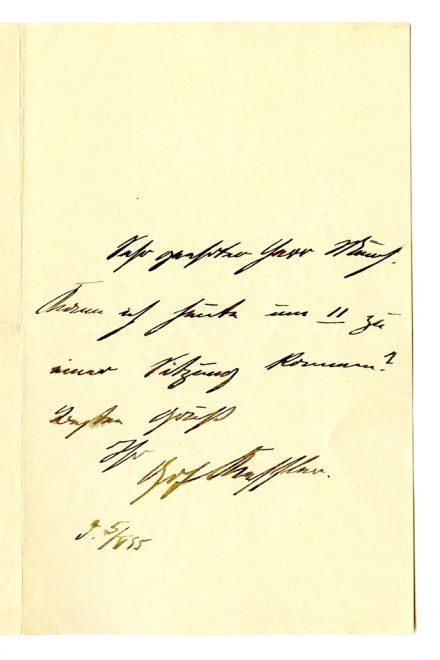 Sehr geehrter Herr Munch.
Kann ich heute um 11 zu
einer Sitzung kommen?
Besten Gruß
Ihr
Grf Kessler.
d. 5/VI 95